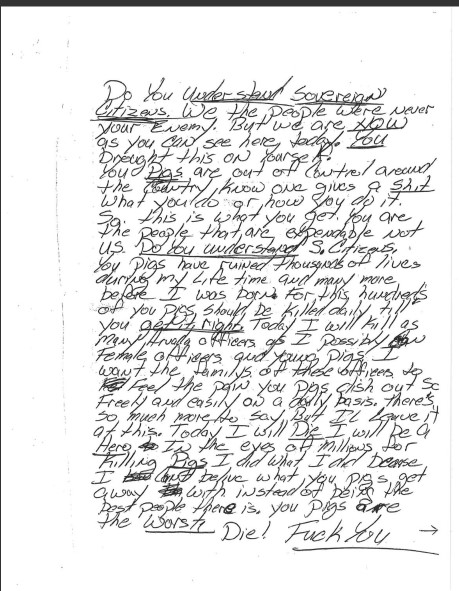 Do You Understand Sovereign
Citizens. We the People were never
your Enemy. But we are NOW
as you can see here, today. You
Brought this on yourself.
You Pigs are out of control around
the country, know one gives a Shit
what you do or how you do it.
So. this is what you get. You are
the people that are expendable Not
US. Do You understand S. Citizens.
You pigs have ruined thousands of lives
during my Life time and many more
before I was born. For this hundreds
of you pigs should be killed daily till
you get it right. Today I will Kill as
many officers as I possibly can
Female officers and young Pigs. I
want the family's of these officers to
Feel the pain you pigs dish out so
Freely and easily on a daily basis. there's
so much more to say But I'L Leave it
at this. Today I will Die. I will be a
Hero In the eyes of millions for
Killing Pigs I did what I did
I what you pigs get
away with instead of being the
best people there is. you pigs are
the Worst. Die! Fuck You →